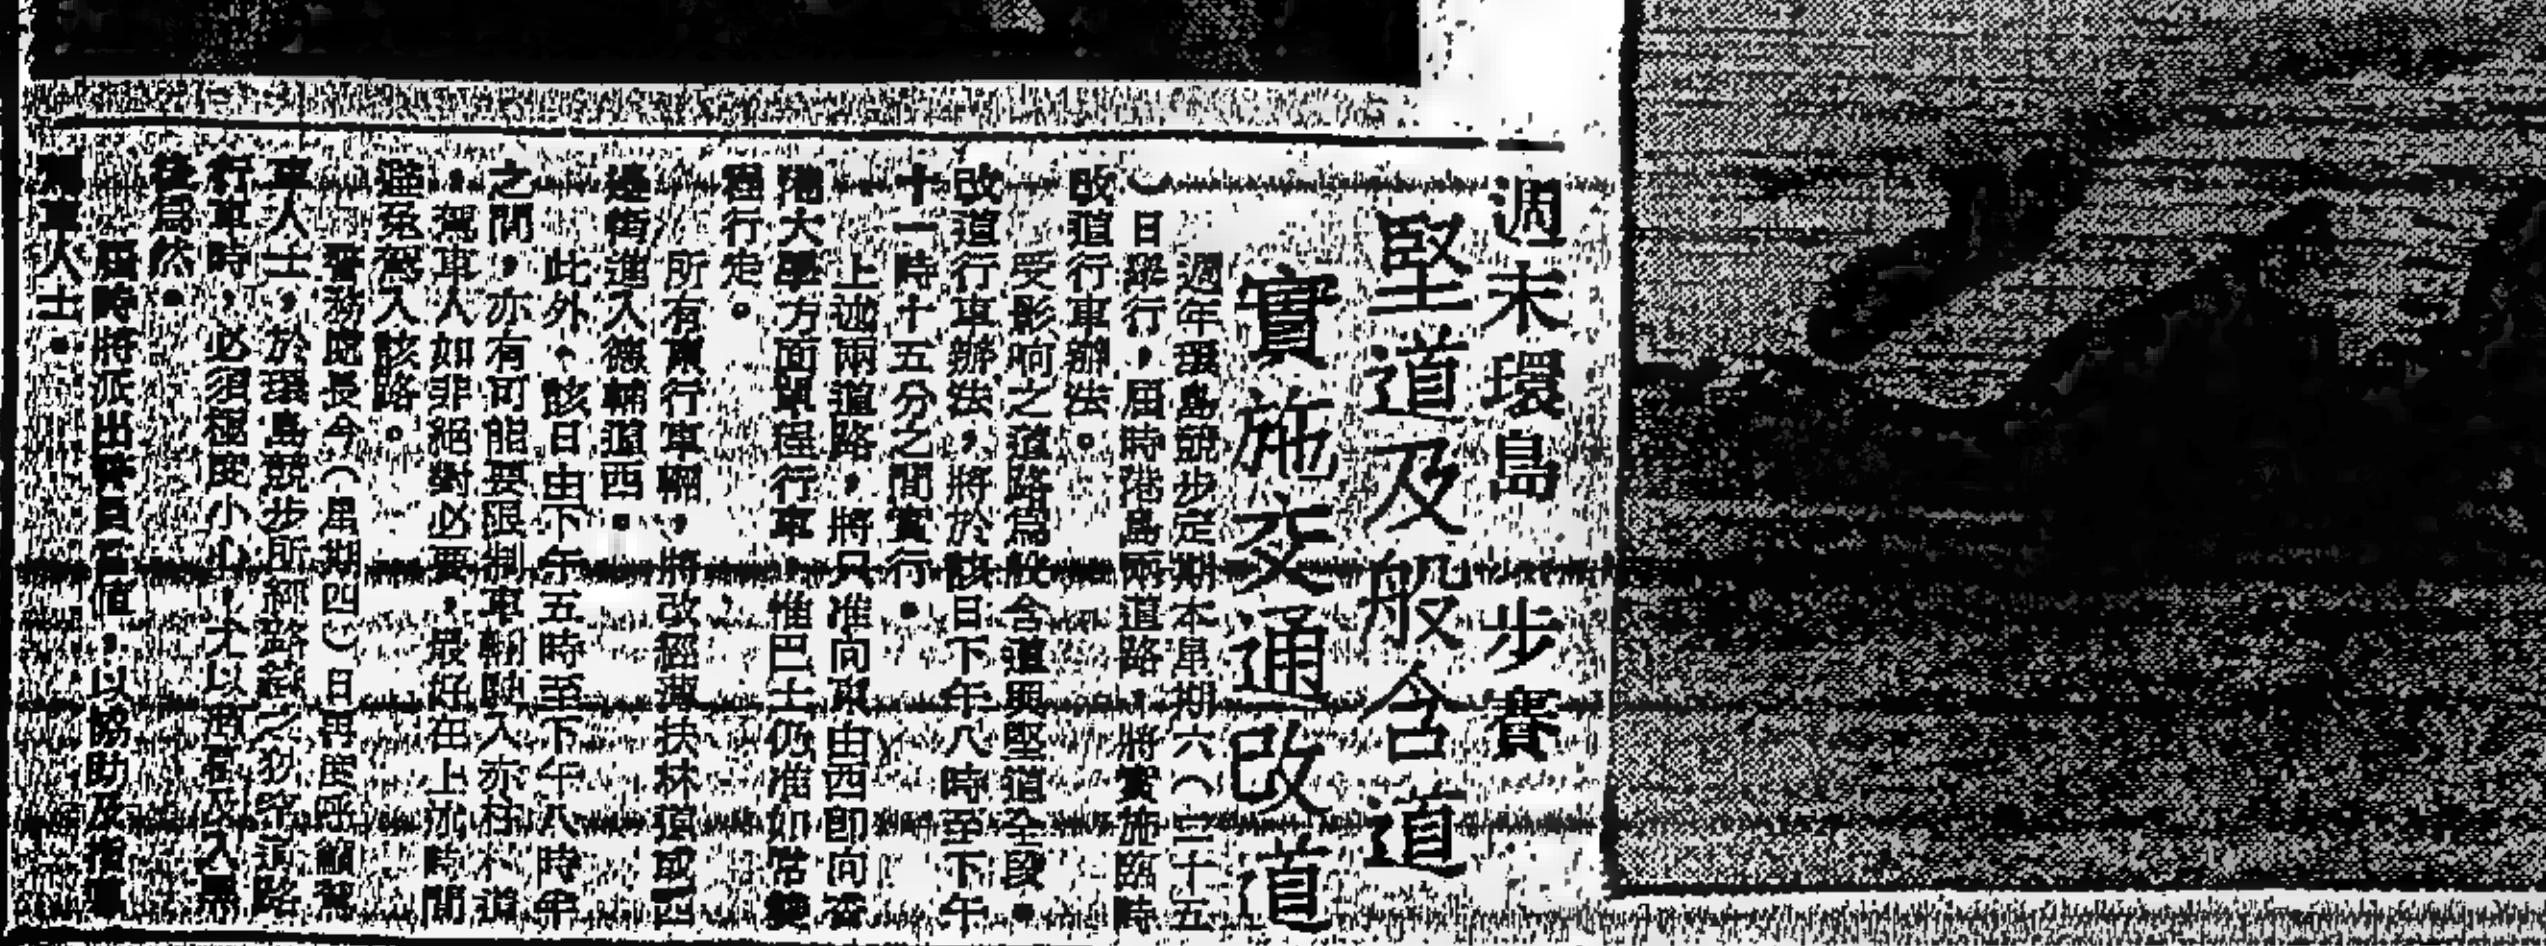 週末環島步賽
堅道及般含道
實施交通改道
週年環島競步定期本星期六（二十五
）日舉行，屆時港島兩道路，將實施臨時
改道行車辦法。
受影响之道路爲般含道與堅道全段。
改道行車辦法，將於該日下午八時至下午
十一時十五分之間實行。
上述兩道路，將只准向東由西即向
港大學方面單程行車，惟巴士仍准如常雙
程行走。
所有東行車輛，將改經薄扶林道或西
邊街進入德輔道西。
此外，該日由下午五時至下午八時
之間，亦有可能要限制車輛駛入
，駕車人如非絕對必要，最好在上述時間
避免駕入該路。
警務處長今（星期四）日再度呼籲駕
車人士，於環島競步所經路線之狹窄道路
行車時，必須極度小心，尤以
爲然。
屆時將派出警員當值，以協助及指導
駕車人士。